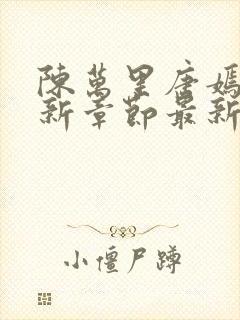 陳萬里唐嫣
新章節最新
小僵尸蹲